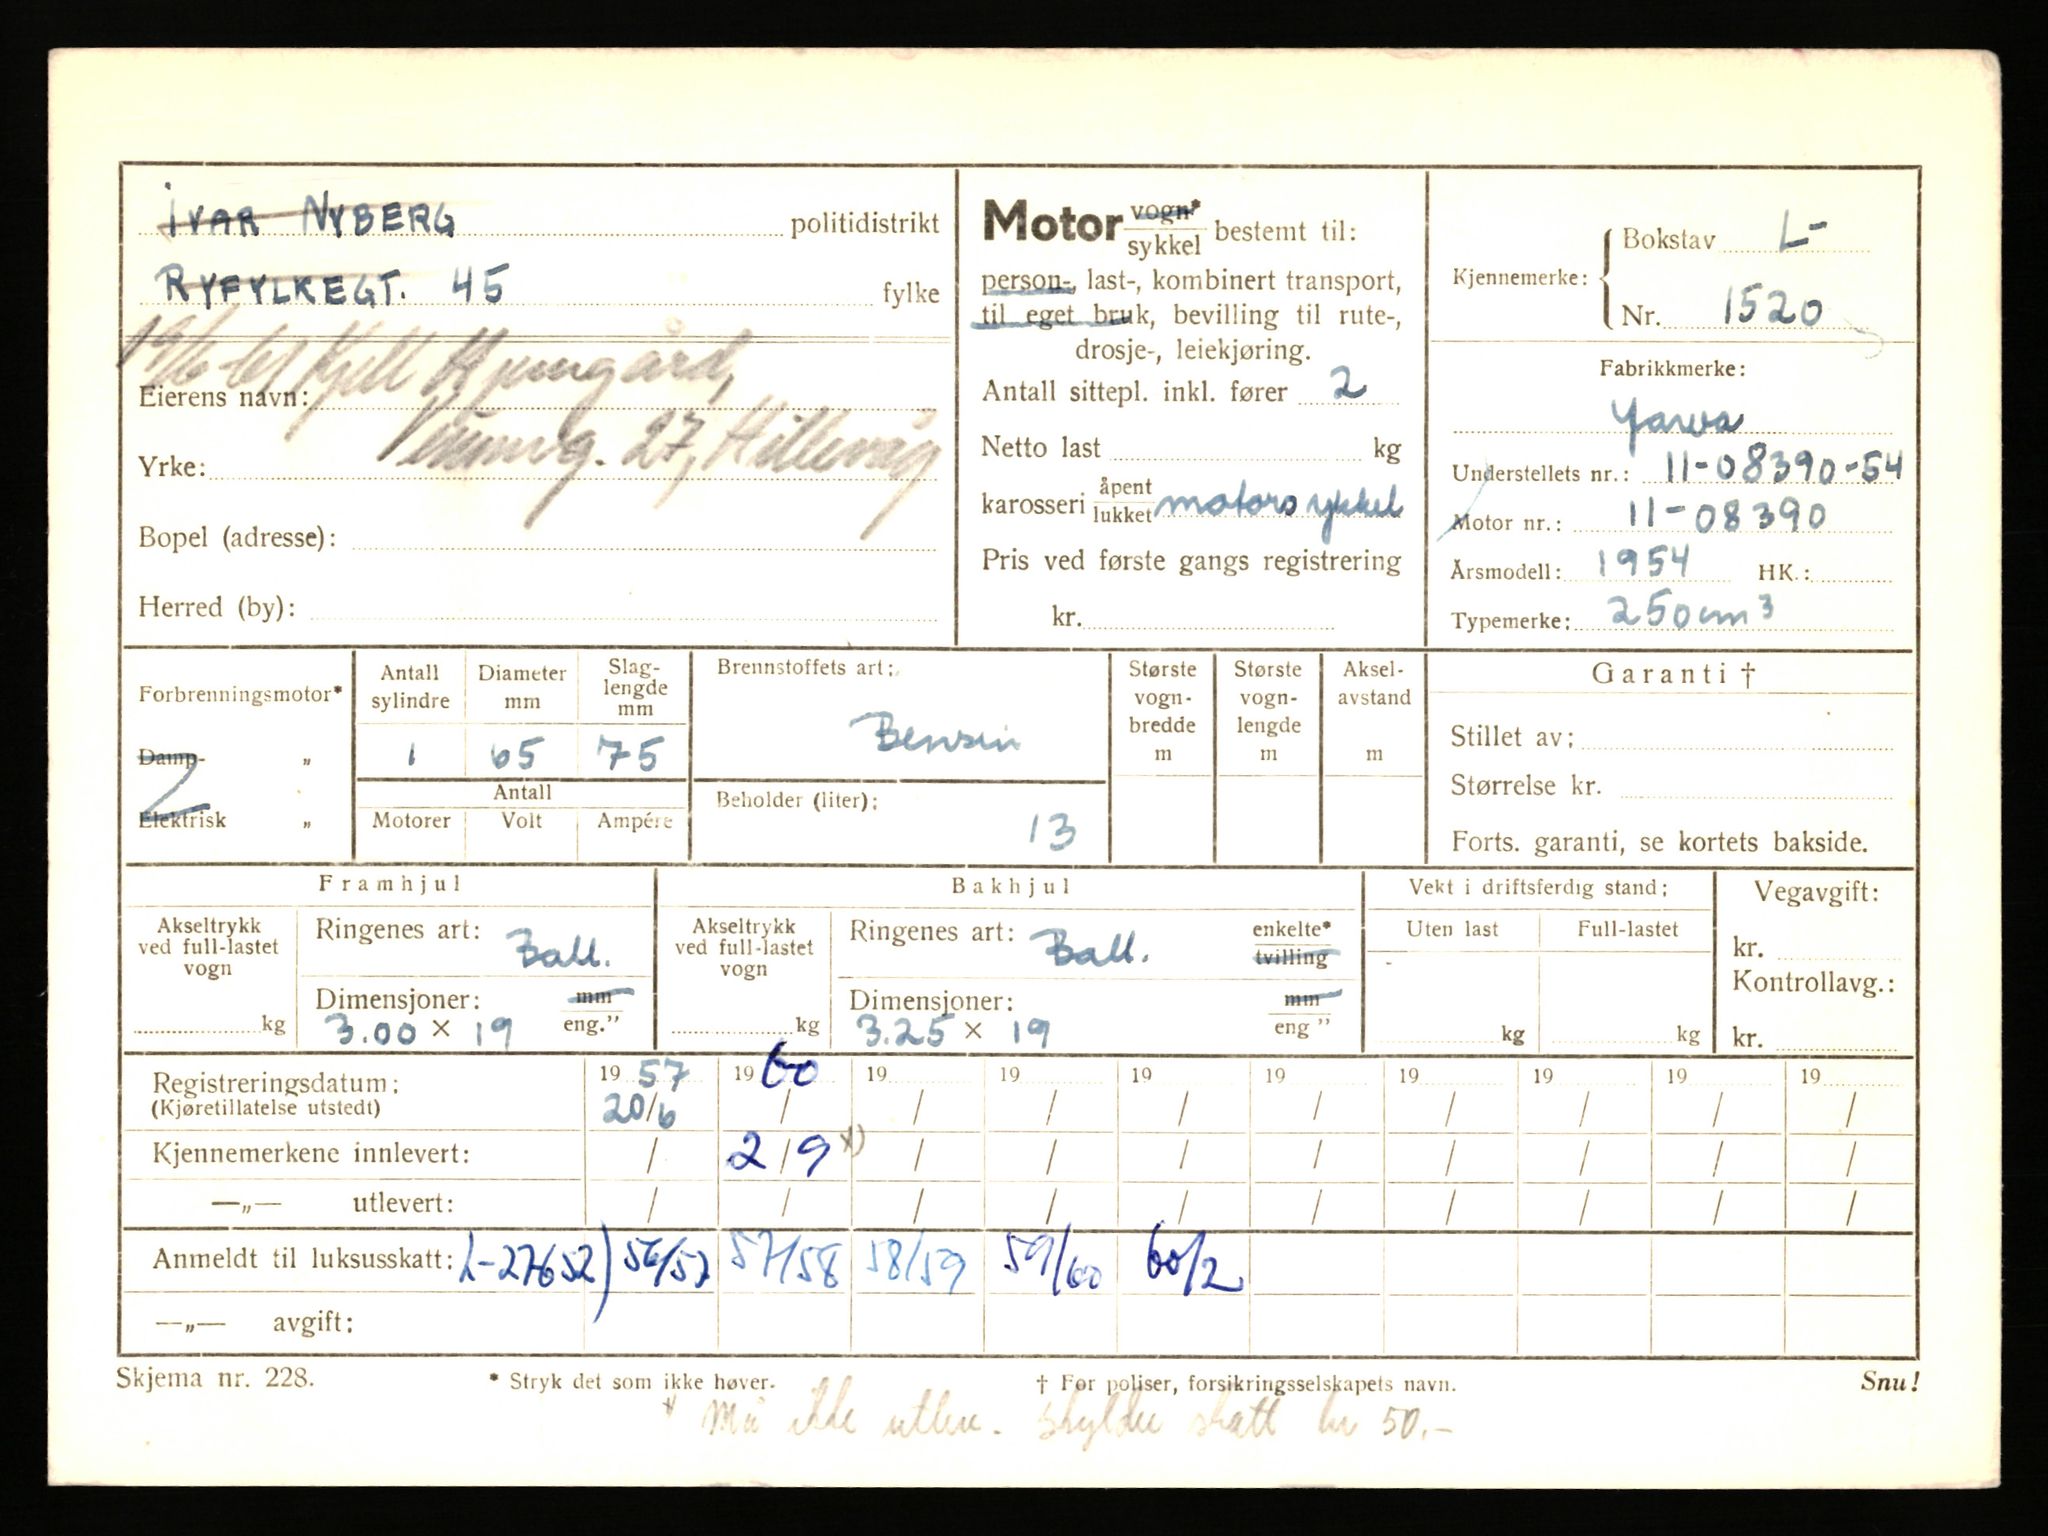 IVAR NYBERG politidistrikt
RYFYLKEGT. 45 fylke
19/6-61 Kjell
Eierens navn:
27, Hillevåg
Yrke:
Bopel (adresse):
Herred (by):
Motor vogn* / sykkel bestemt til:
person-, last-, kombinert transport,
til eget bruk, bevilling til rute-,
drosje-, leiekjøring.
Antall sittepl. inkl. fører 2
Netto last kg
karosseri åpent / lukket motorsykkel
Pris ved første gangs registrering
kr.
Kjennemerke: Bokstav L-
Nr. 1520
Fabrikkmerke:
Yawa
Understellets nr.: 11-08390-54
Motor nr.: 11-08390
Årsmodell: 1954 HK.:
Typemerke: 250 cm³
Forbrenningsmotor*
Damp- „
Elektrisk „
Antall sylindre Diameter mm Slag-lengde mm
1 65 75
Antall
Motorer Volt Ampére
Brennstoffets art:
Bensin
Beholder (liter):
13
Største vogn-bredde m
Største vogn-lengde m
Aksel-avstand m
Garanti †
Stillet av:
Størrelse kr.
Forts. garanti, se kortets bakside.
Framhjul
Akseltrykk ved full-lastet vogn
kg
Ringenes art: Ball.
Dimensjoner: mm / eng."
3.00 × 19
Bakhjul
Akseltrykk ved full-lastet vogn
kg
Ringenes art: Ball. enkelte* / tvilling
Dimensjoner: mm / eng "
3.25 × 19
Vekt i driftsferdig stand:
Uten last Full-lastet
kg kg
Vegavgift:
kr.
Kontrollavg.:
kr.
Registreringsdatum: 19 57 19 60 19 19 19 19 19 19 19 19
(Kjøretillatelse utstedt) 20/6 / / / / / / / / /
Kjennemerkene innlevert: / 2/9 x) / / / / / / / /
—„— utlevert: / / / / / / / / / /
Anmeldt til luksusskatt: L-27652) 56/57 57/58 58/59 59/60 60/2
—„— avgift:
Skjema nr. 228. * Stryk det som ikke høver. † For poliser, forsikringsselskapets navn. Snu!
x Må ikke utlev. skylder skatt kr 50.-